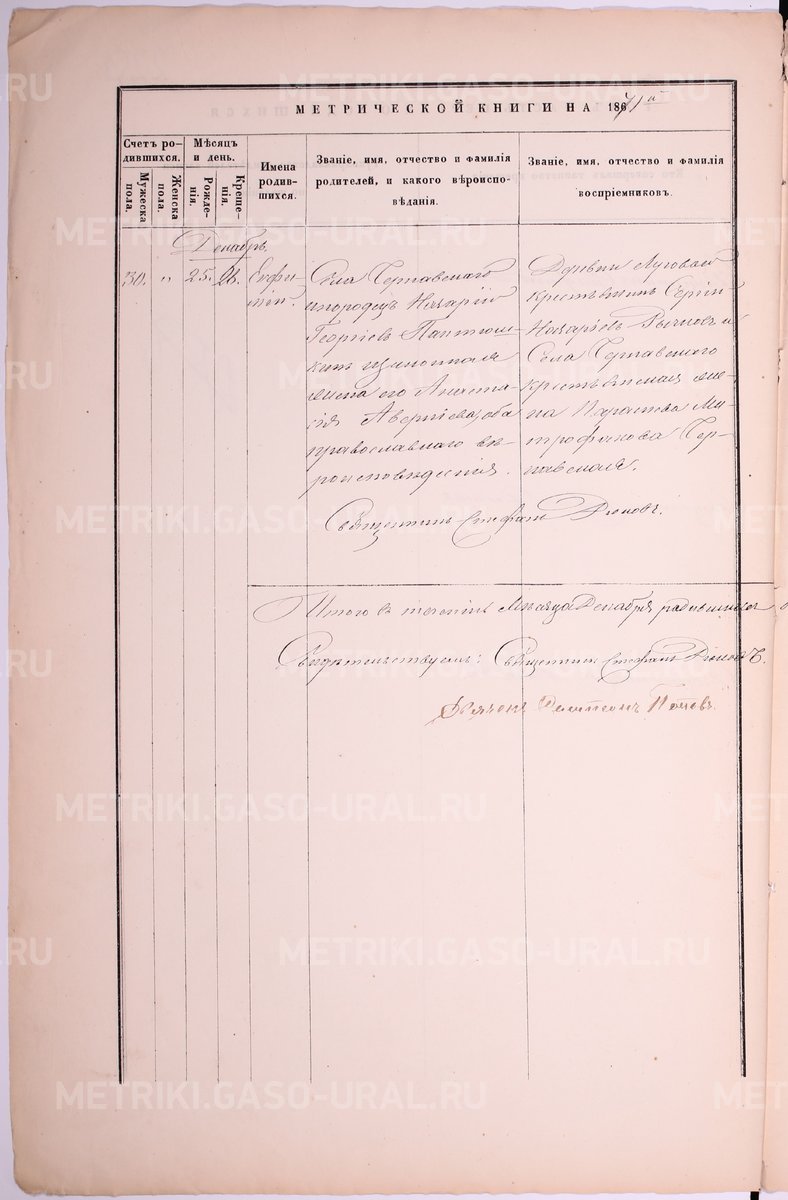 МЕТРИЧЕСКОЙ КНИГИ НА 1871 й
Счетъ ро-
дившихся.
Мужеска
пола.
Женска
пола.
Мѣсяцъ
и день.
Рожде-
нія.
Креще-
нія.
Имена
родив-
шихся.
Званіе, имя, отчество и фамилія
родителей, и какого вѣроиспо-
вѣданія.
Званіе, имя, отчество и фамилія
воспріемниковъ.
Декабрь
30. " 25. 26.
Села Чернавскаго
инородецъ Назарій
Георгіевъ
жена его Анаста-
сія Аверкіева, оба
православнаго вѣ-
роисповѣданія.
Деревни Луговой
крестьянинъ Сергій
Назаріевъ и
Села Чернавскаго
крестьянская же-
на Параскева Ми-
трофанова Чер-
навская.
Священникъ Стефанъ
Итого въ теченіи Мѣсяца Декабря родившихся
Свидѣтельствуемъ: Священникъ Стефанъ
Дьячекъ Поповъ.
METRIKI.GASO-URAL.RU